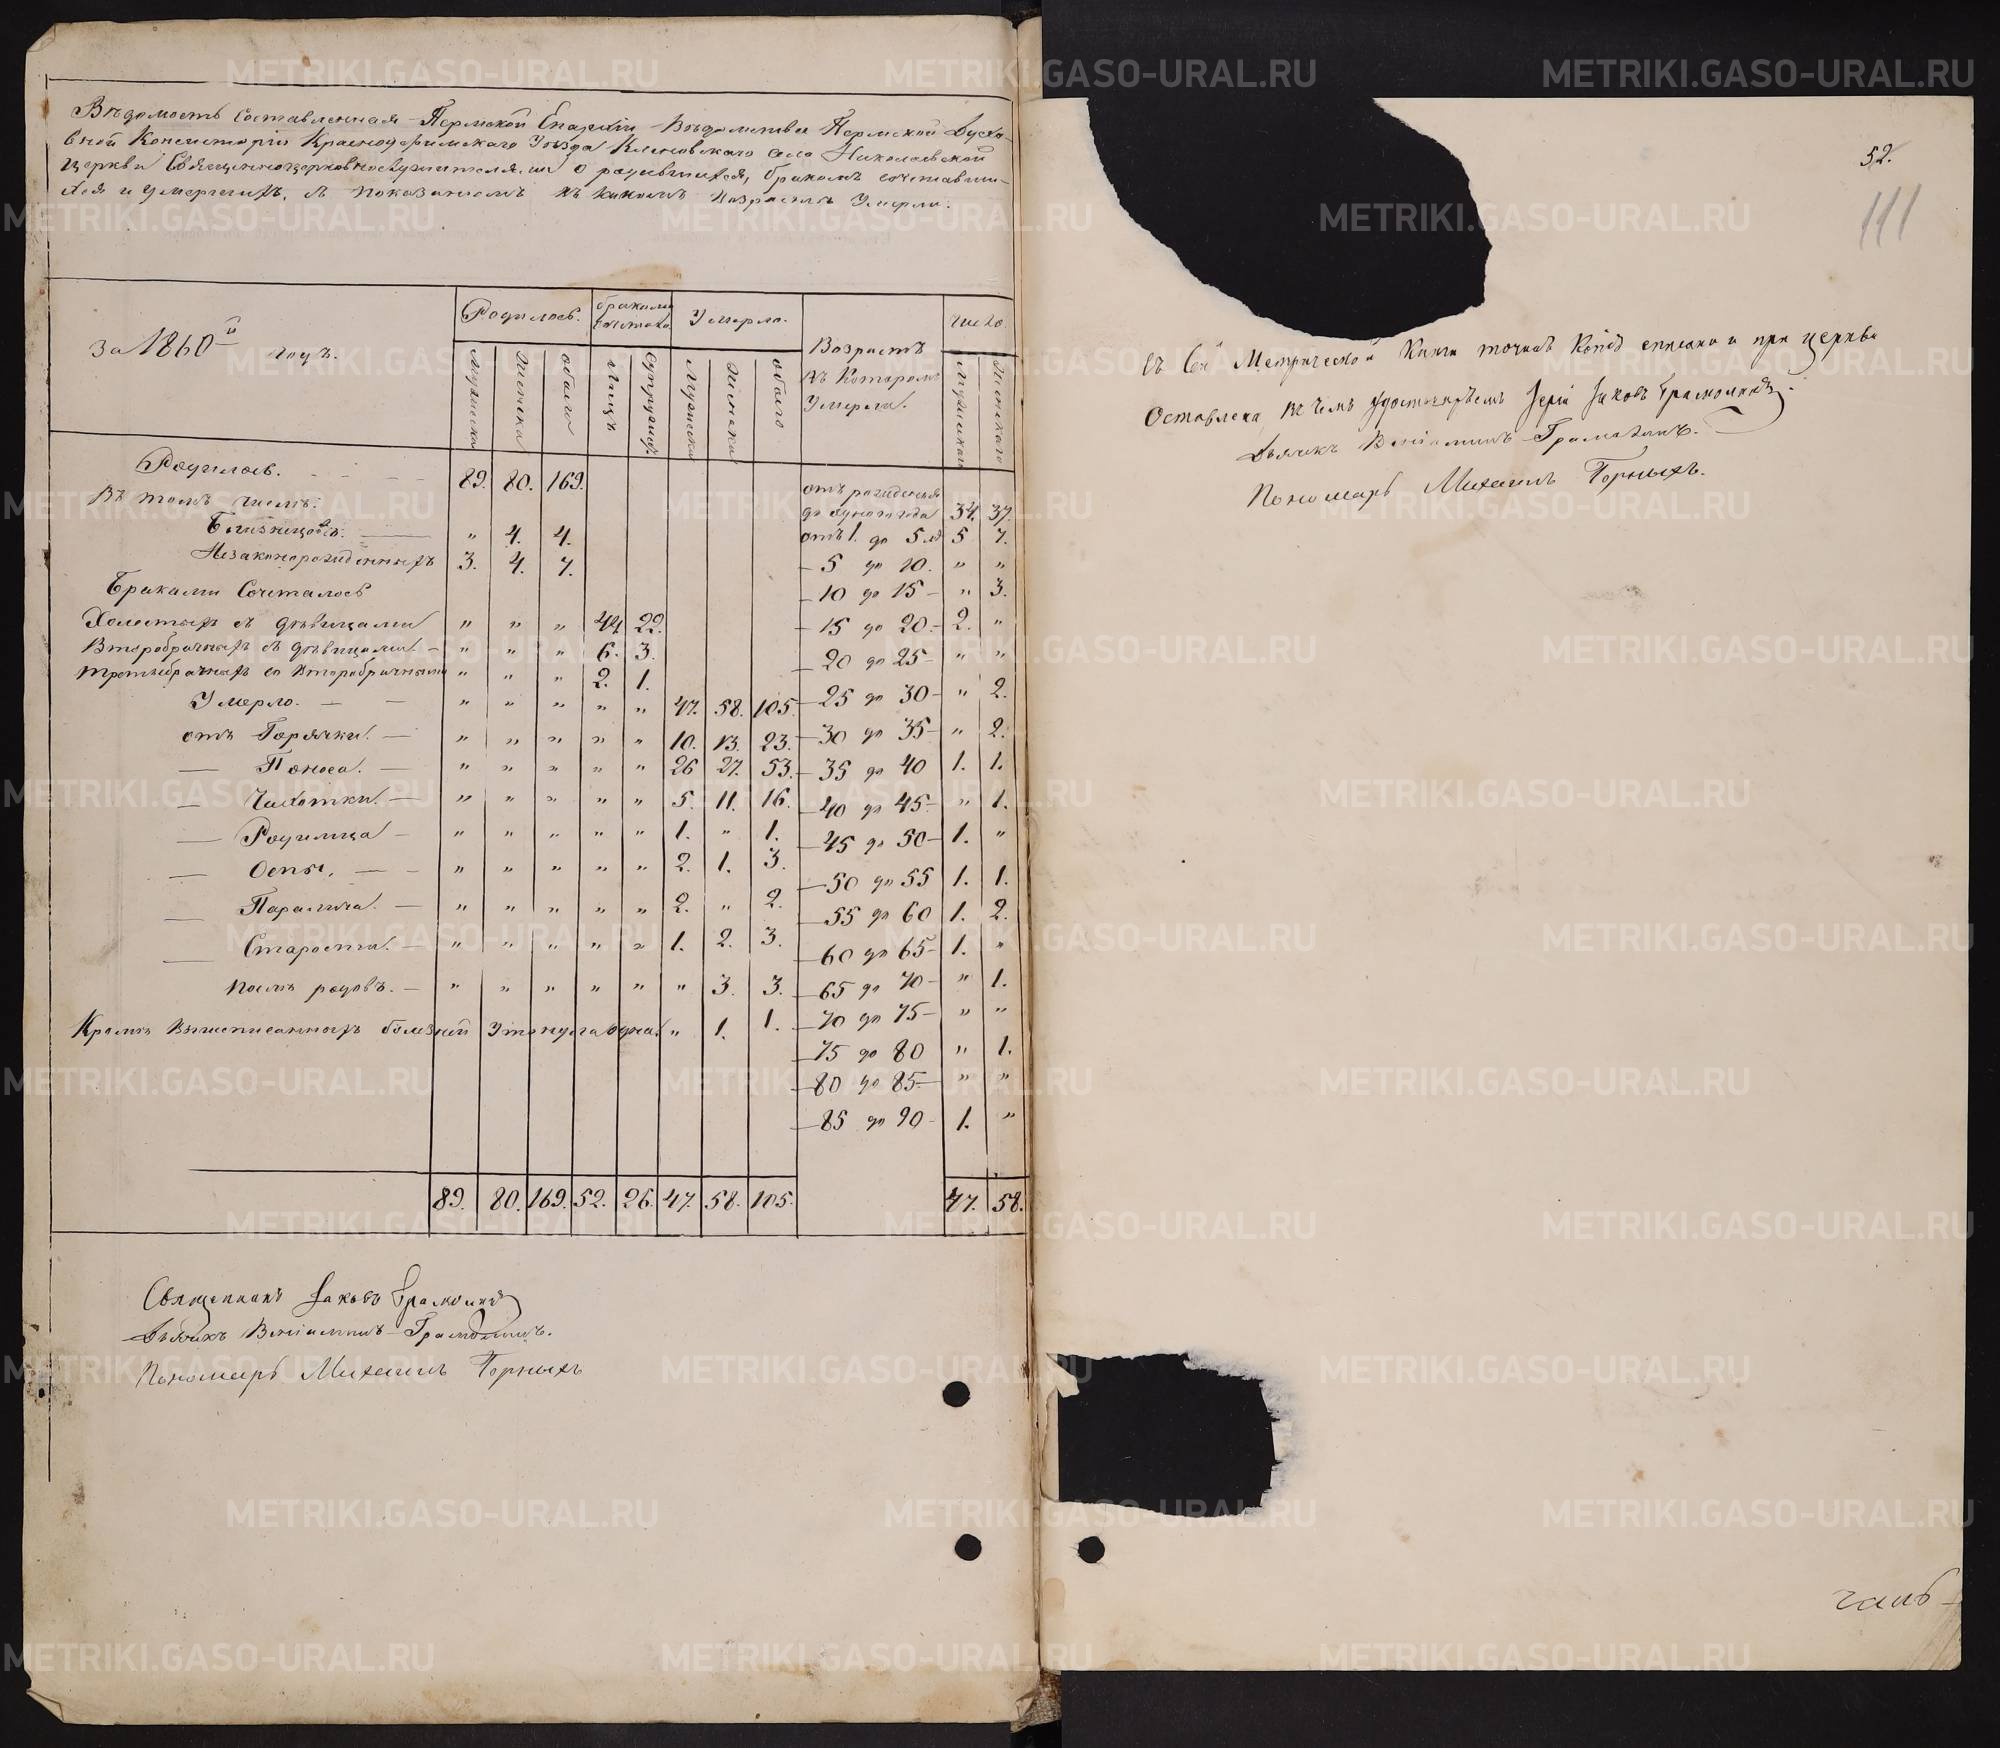 Вѣдомость составленная Пермской Епархіи Вѣдомства Пермской Духо-
вной Консисторіи Красноуфимскаго Уѣзда Кленовскаго села Николаевской
церкви Священноцерковнослужителями о родившихся, бракомъ сочетавши-
хся и умершихъ, съ показаніемъ въ какомъ возрастѣ Умерли.
За 1860й годъ.
Родилось. браками Умерло. Возрастъ въ Которомъ Умерли. число.
Мужеска Женска обоего Лицъ Супружес. Мужеска Женска обоего Мужескаго Женскаго
Родилось. 89. 80. 169.
Въ томъ числѣ:
Близнецовъ. " 4. 4.
Незаконорожденныхъ 3. 4. 7.
Браками Сочеталось
Холостыхъ съ дѣвицами " " " 44 22.
Второбрачныхъ съ дѣвицами " " " 6. 3.
третьебрачныхъ со второбрачными " " " 2. 1.
Умерло. " " " " " 47. 58. 105.
отъ Горячки. " " " " " 10. 13. 23.
— Поноса. " " " " " 26 27. 53.
— Чахотки. " " " " " 5. 11. 16.
— Родимца " " " " " 1. " 1.
— Оспы. " " " " " 2. 1. 3.
— Паралича. " " " " " 2. " 2.
— Старости. " " " " " 1. 2. 3.
послѣ родовъ. " " " " " " 3. 3.
Кромѣ вышеписанныхъ болѣзней Утонула одна. " 1. 1.
отъ рожденія
до одного года 34. 37.
отъ 1. до 5 лѣ 5 7.
— 5 до 10. " "
— 10 до 15 — " 3.
— 15 до 20. — 2. "
— 20 до 25 — " "
— 25 до 30 — " 2.
— 30 до 35 — " 2.
— 35 до 40 1. 1.
— 40 до 45 — " 1.
— 45 до 50 — 1. "
— 50 до 55 1. 1.
— 55 до 60 1. 2.
— 60 до 65 — 1. "
— 65 до 70 — " 1.
— 70 до 75 — " "
— 75 до 80 " 1.
— 80 до 85 — " "
— 85 до 90 — 1. "
89. 80. 169. 52. 26. 47. 58. 105. 47. 58.
Священникъ Іаковъ Грамолинъ
Дьячекъ Веніаминъ Грамолинъ.
Пономарь Михаилъ Горныхъ
52.
111
Съ сей Метрической Книги точная Копія списана и при церкви
Оставлена, въ чемъ удостовѣряемъ Іерей Іаковъ Грамолинъ.
Дьячекъ Веніаминъ Грамолинъ.
Пономарь Михаилъ Горныхъ.
METRIKI.GASO-URAL.RU